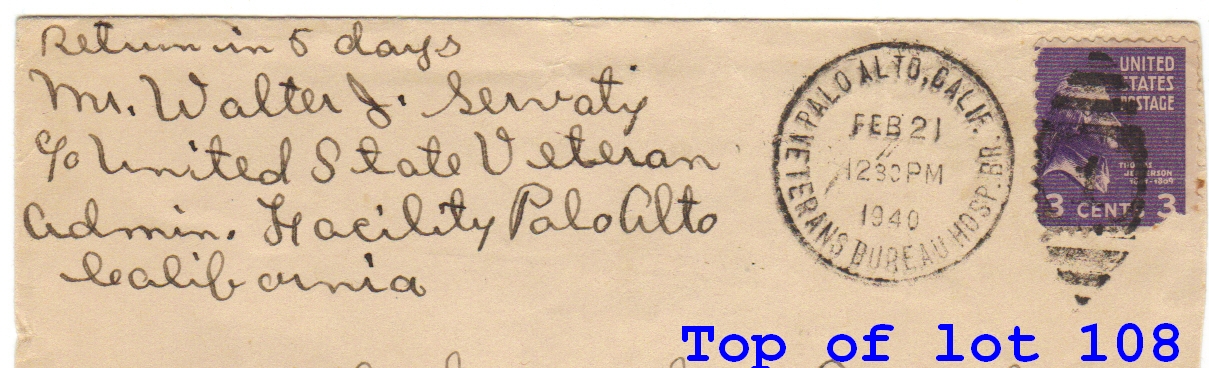 Return in 5 days
Mr. Walter J. Servaty
c/o United State Veteran
Admin. Facility Palo Alto
California
PALO ALTO, CALIF.
VETERANS BUREAU HOSP. BR.
FEB 21
12 30 PM
1940
UNITED
STATES
POSTAGE
THOMAS
JEFFERSON
1801-1809
3 CENTS 3
Top of lot 108